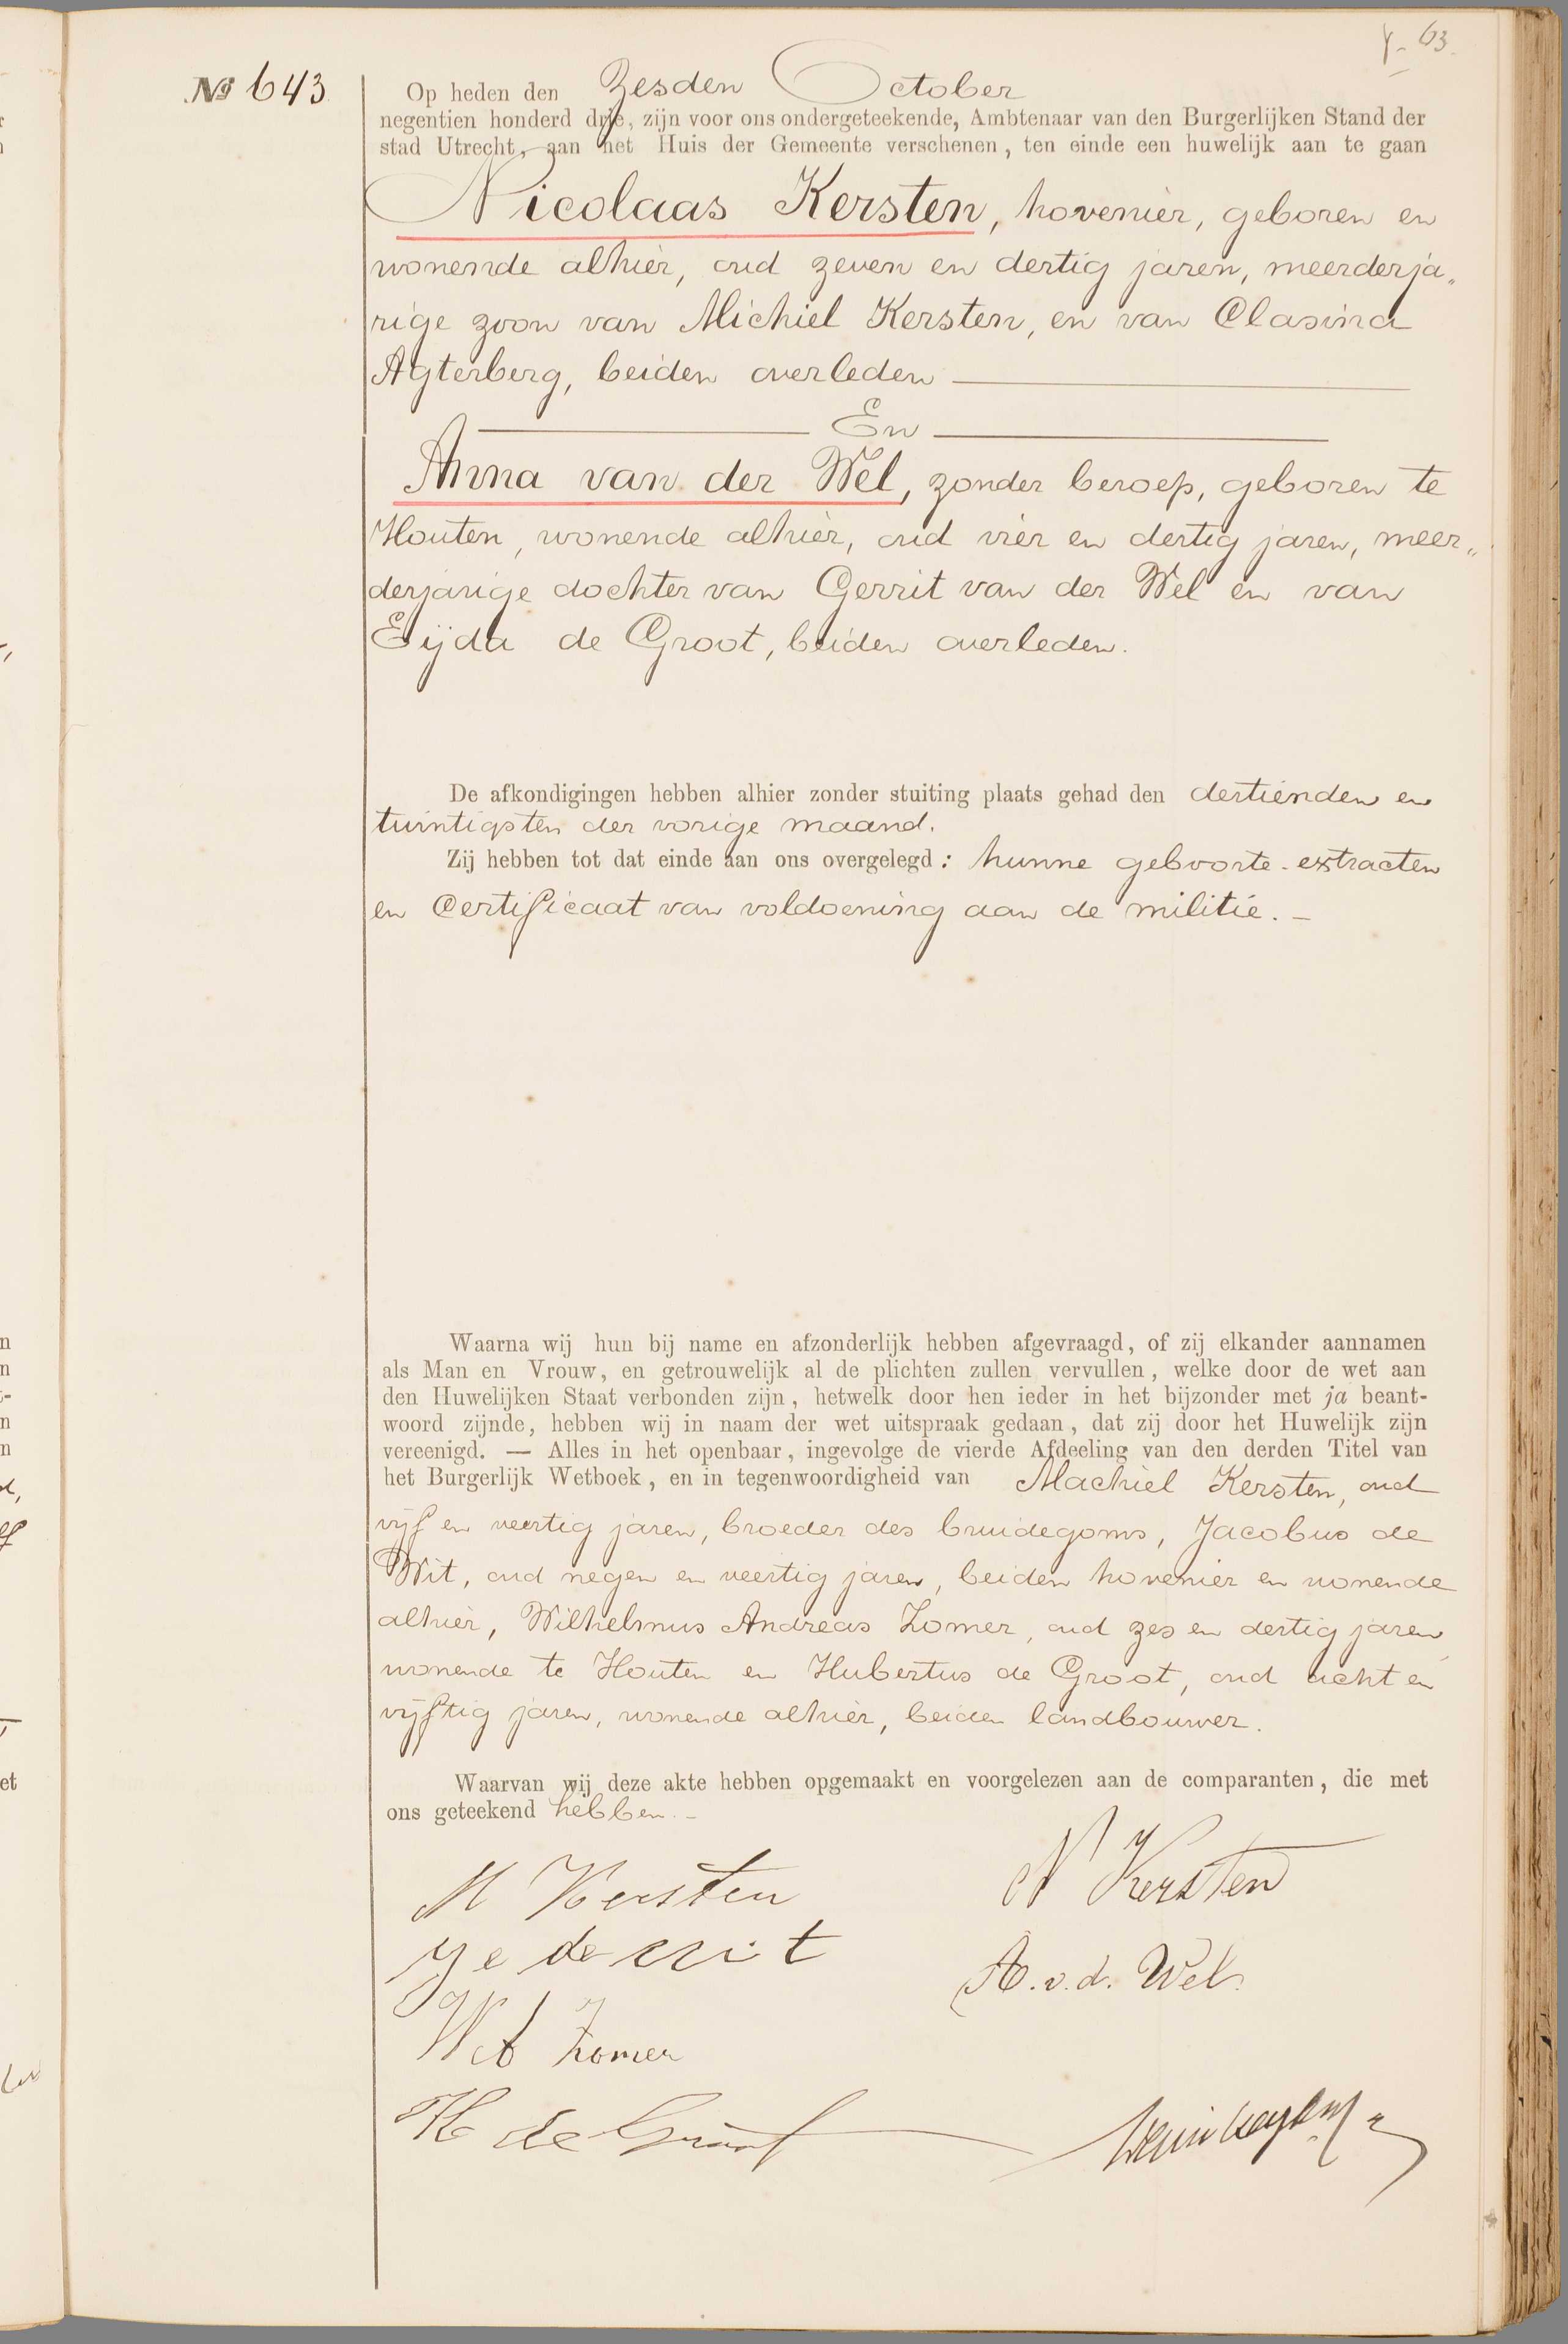 63.
No 643.
Op heden den Zesden October
negentien honderd drie, zijn voor ons ondergeteekende, Ambtenaar van den Burgerlijken Stand der
stad Utrecht, aan het Huis der Gemeente verschenen, ten einde een huwelijk aan te gaan
Nicolaas Kersten, hovenier, geboren en
wonende alhier, oud zeven en dertig jaren, meerderja„
rige zoon van Michiel Kersten, en van Clasina
Agterberg, beiden overleden
En
Anna van der Wel, zonder beroep, geboren te
Houten, wonende alhier, oud vier en dertig jaren, meer„
derjarige dochter van Gerrit van der Wel en van
Eijda de Groot, beiden overleden.
De afkondigingen hebben alhier zonder stuiting plaats gehad den dertienden en
twintigsten der vorige maand.
Zij hebben tot dat einde aan ons overgelegd: hunne geboorte-extracten
en Certificaat van voldoening aan de militie. –
Waarna wij hun bij name en afzonderlijk hebben afgevraagd, of zij elkander aannamen
als Man en Vrouw, en getrouwelijk al de plichten zullen vervullen, welke door de wet aan
den Huwelijken Staat verbonden zijn, hetwelk door hen ieder in het bijzonder met ja beant-
woord zijnde, hebben wij in naam der wet uitspraak gedaan, dat zij door het Huwelijk zijn
vereenigd. — Alles in het openbaar, ingevolge de vierde Afdeeling van den derden Titel van
het Burgerlijk Wetboek, en in tegenwoordigheid van Machiel Kersten, oud
vijf en veertig jaren, broeder des bruidegoms, Jacobus de
Wit, oud negen en veertig jaren, beiden hovenier en wonende
alhier, Wilhelmus Andreas Zomer, oud zes en dertig jaren,
wonende te Houten en Hubertus de Groot, oud acht en
vijftig jaren, wonende alhier, beiden landbouwer.
Waarvan wij deze akte hebben opgemaakt en voorgelezen aan de comparanten, die met
ons geteekend hebben. –
M Kersten
N Kersten
de Wit
A. v. d. Wel.
W A Zomer
H de Groot